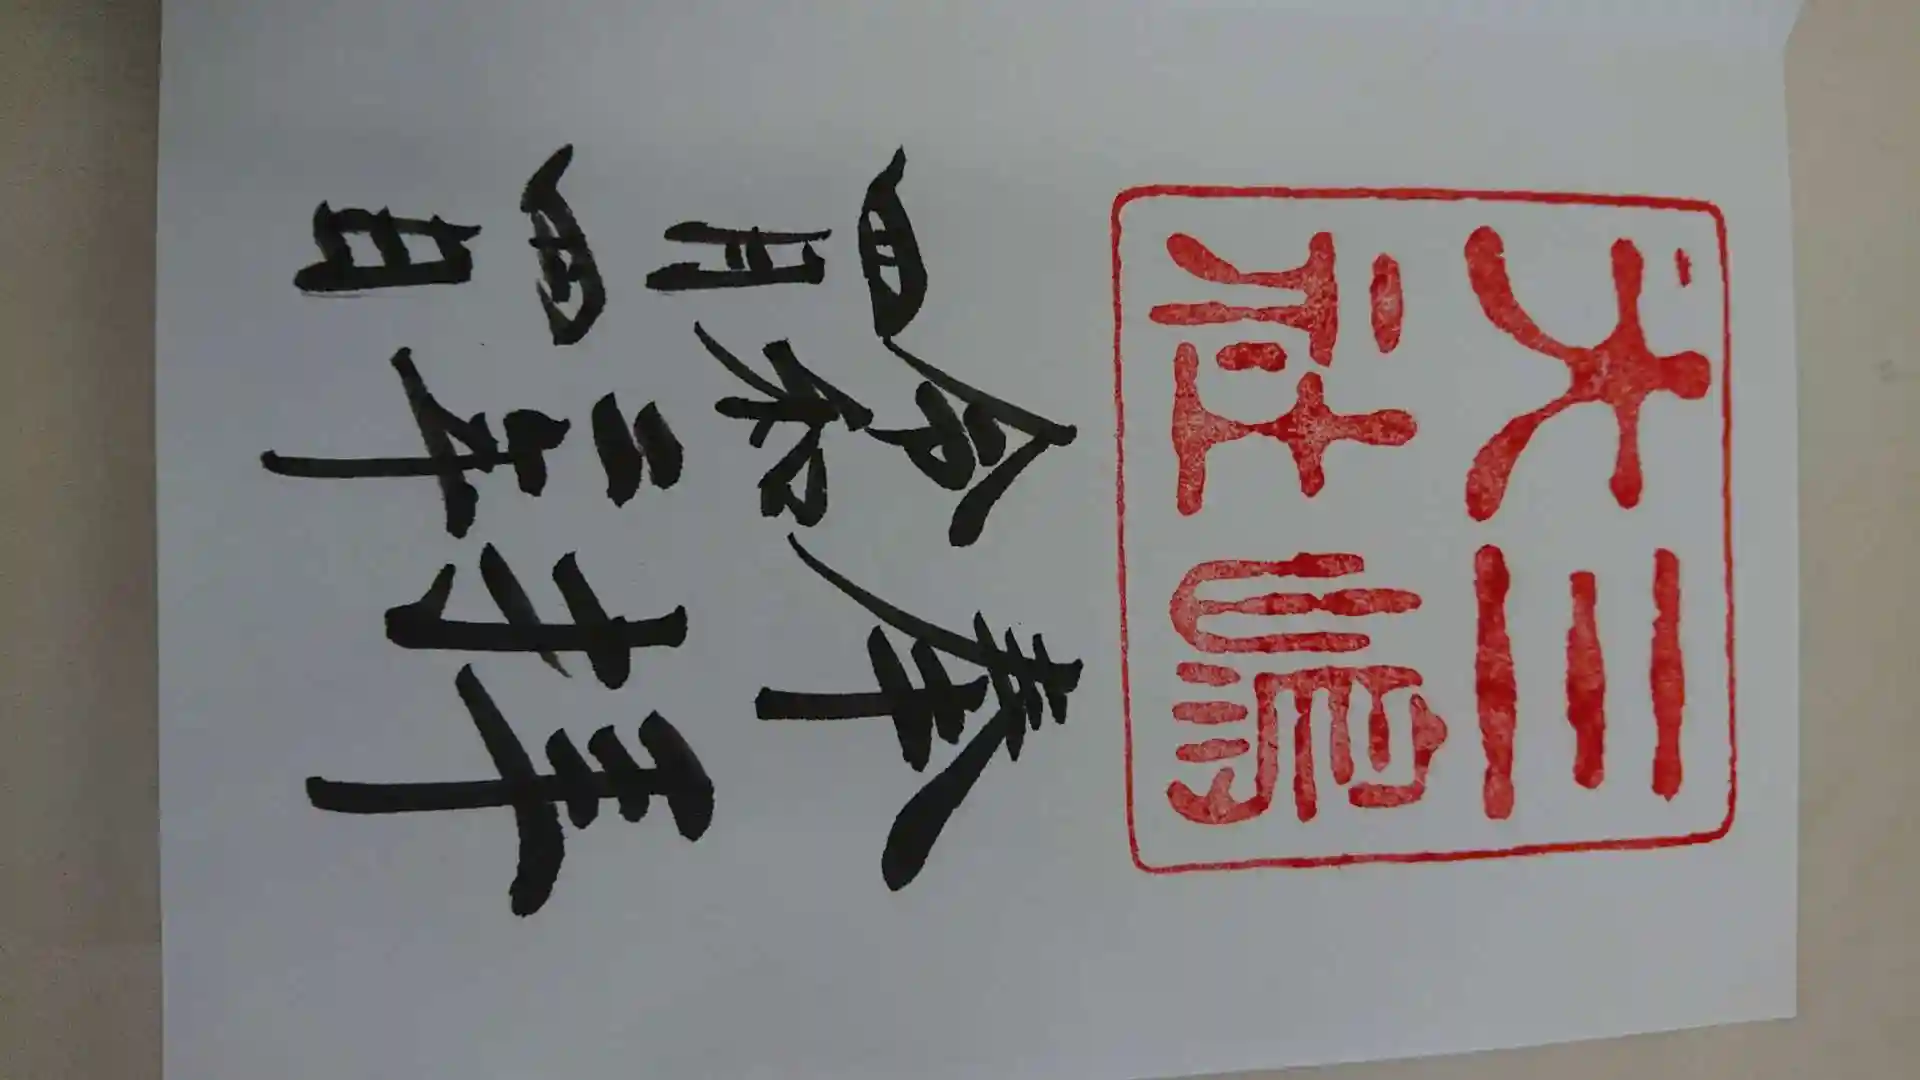 三嶋
大社
奉拝
令和三年
四月四日